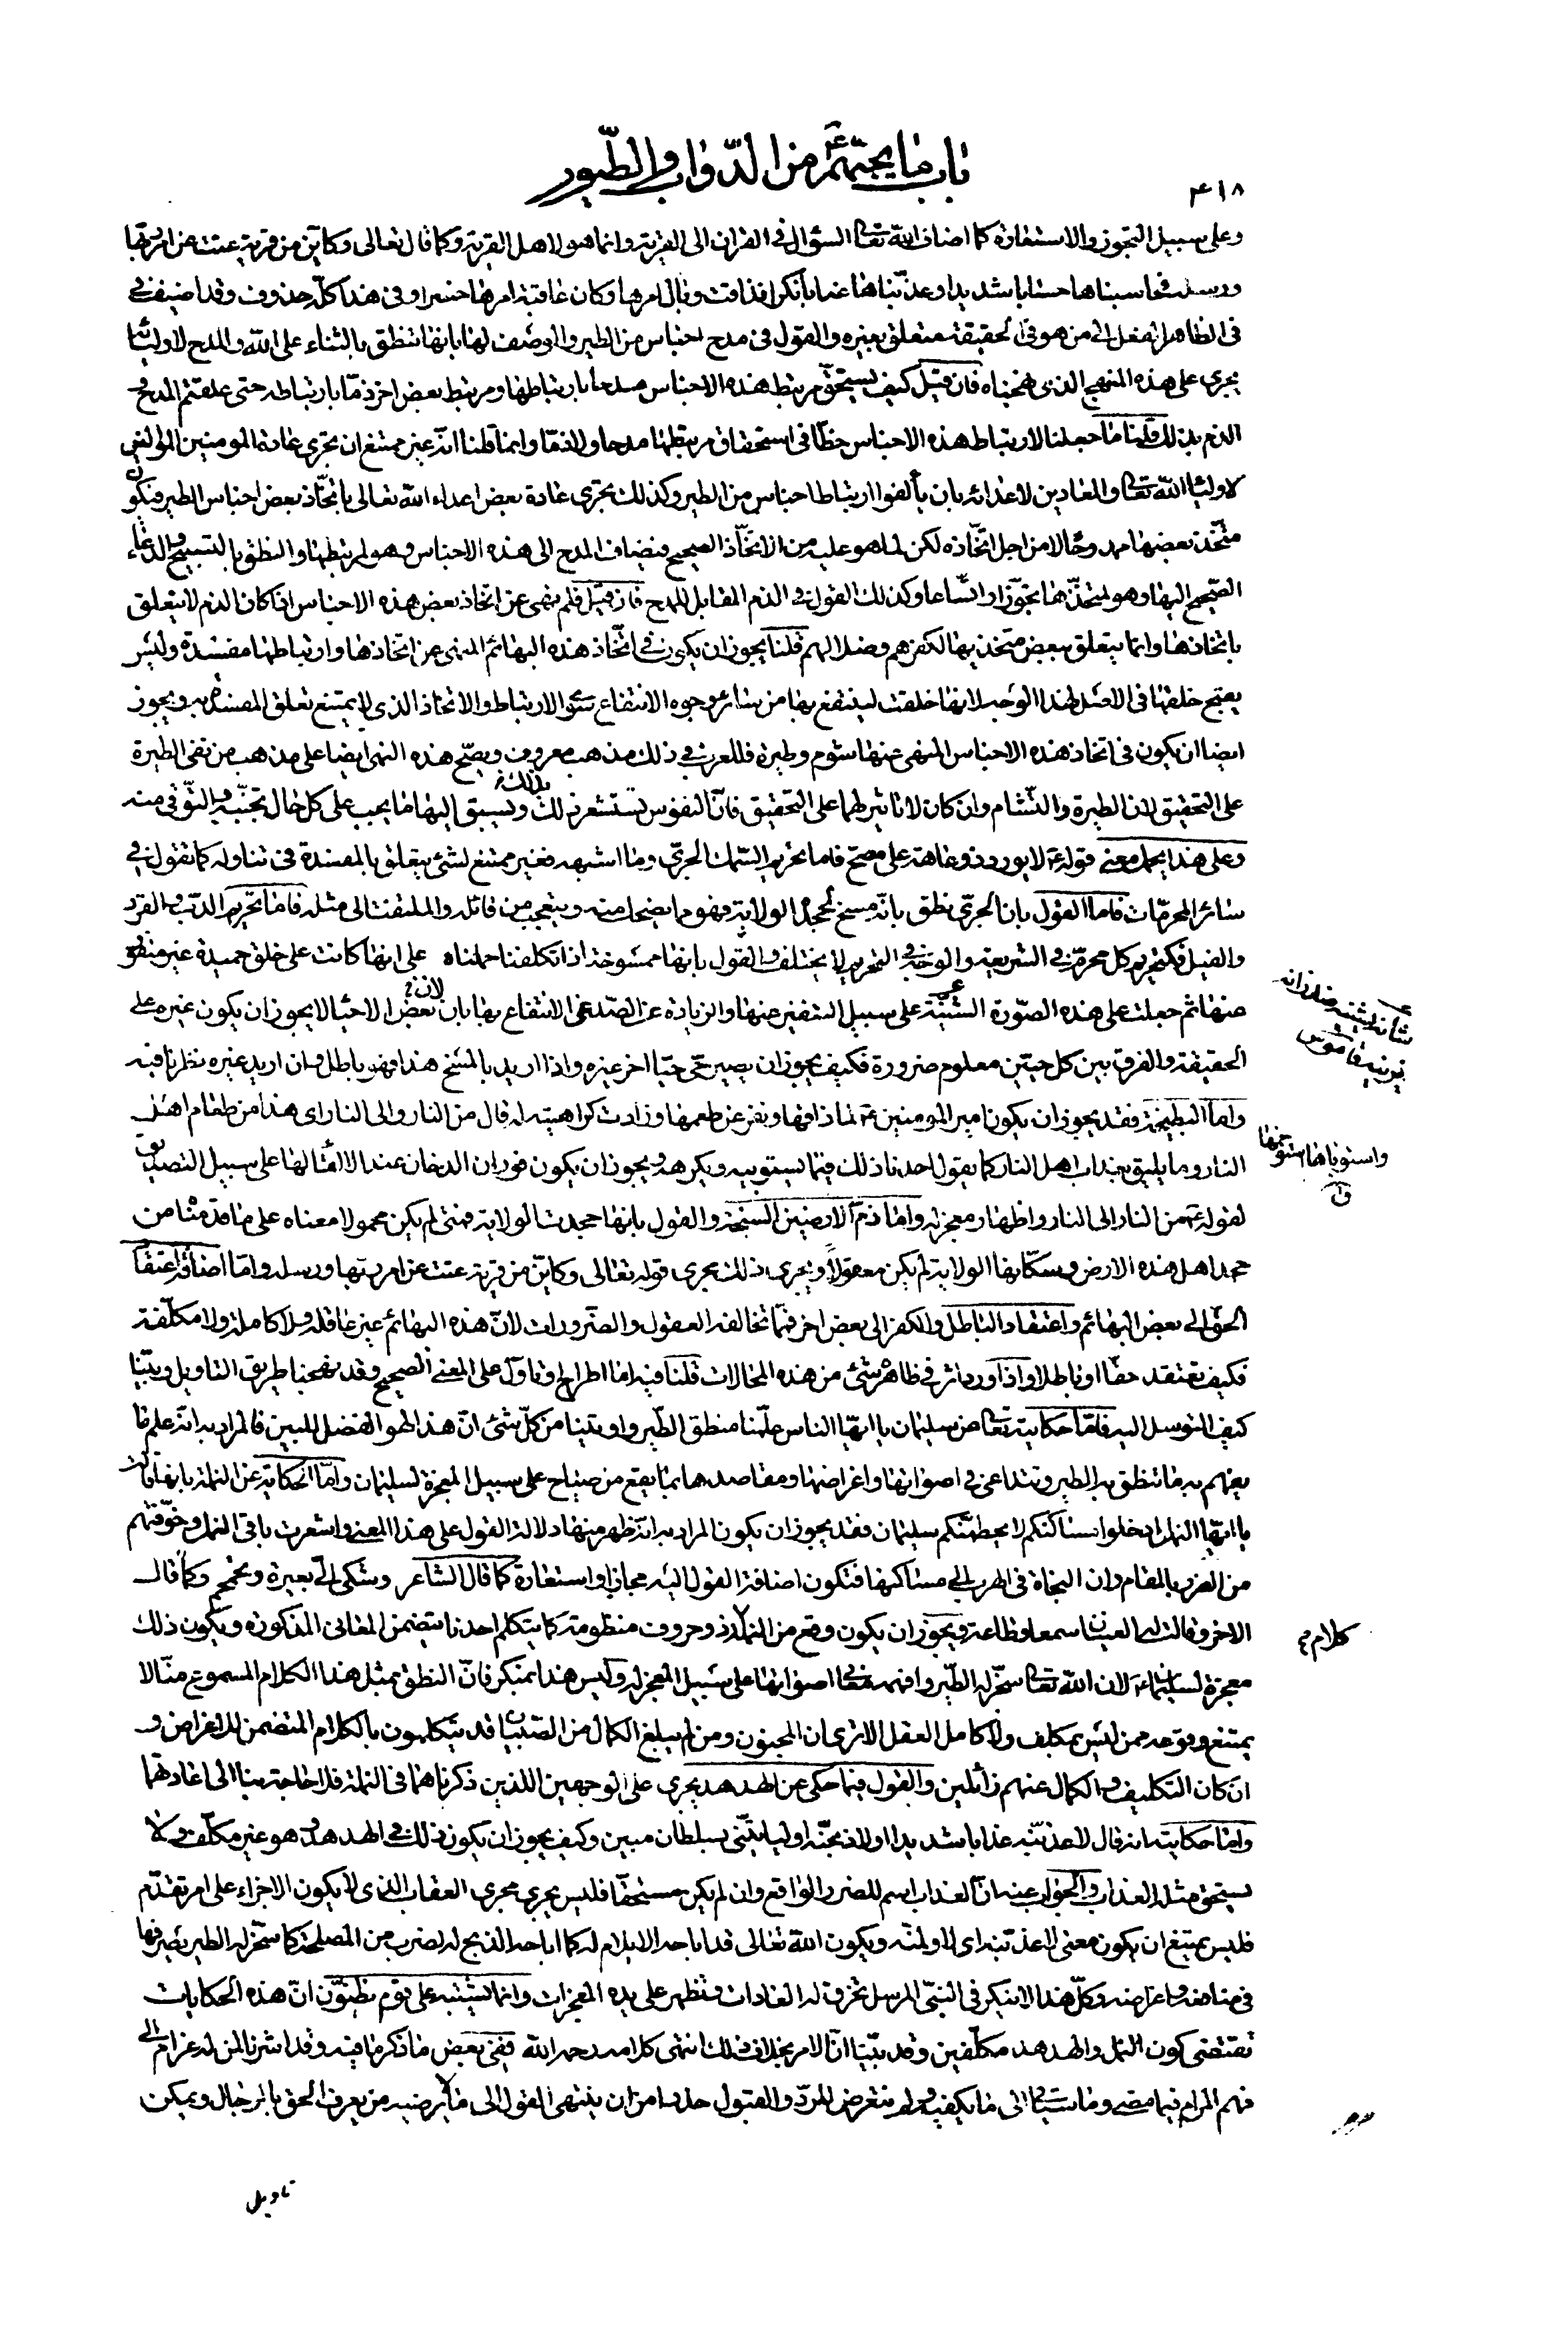 ٤١٨
باب ما يجتهم من الدواب والطيور
وعلى سبيل التجوز والاستعارة كما اضاف الله تعالى السؤال في القران الى القرية وانما هو لاهل القرية وكما قال تعالى وكاين من قرية عتت عن امر ربها
ورسله فحاسبناها حسابا شديدا وعذبناها عذابا نكرا فذاقت وبال امرها وكان عاقبة امرها خسرا وفي هذا كله حذوف وقد اضيف في
في الظاهر الفعل الى من هو في الحقيقة متعلق بغيره والقول في مدح اجناس من الطير والوصف لها بانها تنطق بالثناء على الله والمدح لاوليائه
يجري على هذه المنهج الذي نهجناه فان قيل كيف يستحق مرتبط هذه الاجناس مدحا بارتباطها ومرتبط بعض اخر ذما بارتباطه حتى علقتم المدح و
الذم بذلك قلنا ما جعلنا لارتباط هذه الاجناس حظا في استحقاق مرتبطها مدحا ولا ذما وانما قلنا انه غير ممتنع ان تجري عادة المومنين الموالين
لاولياء الله تعالى والمعادين لاعدائه بان يألفوا ارتباط اجناس من الطير وكذلك تجري عادة بعض اعداء الله تعالى باتخاذ بعض اجناس الطير فيكون
متخذ بعضها ممدوحا لا من اجل اتخاذه لكن لما هو عليه من الاتخاذ الصحيح فيضاف المدح الى هذه الاجناس وهو لمرتبطها والنطق بالتسبيح والدعاء
الصحيح اليها وهو لمتخذها تجوزا واتساعا وكذلك القول في الذم المقابل للمدح فان قيل فلم نهى عن اتخاذ بعض هذه الاجناس اذا كان الذم لا يتعلق
باتخاذها وانما يتعلق ببعض متخذيها لكفرهم وضلالهم قلنا يجوز ان يكون في اتخاذ هذه البهائم المنهى عن اتخاذها وارتباطها مفسدة وليس
يقبح خلقها في الاصل لهذا الوجه لانها خلقت لينتفع بها من سائر وجوه الانتفاع سوى الارتباط والاتخاذ الذي لا يمتنع تعلق المفسدة به ويجوز
ايضا ان يكون في اتخاذ هذه الاجناس المنهى عنها شوم وطيرة فللعرب في ذلك مذهب معروف ويصح هذه النهى ايضا على مذهب من نفى الطيرة
على التحقيق لان الطيرة والتشام وان كان لا تاثير لهما على التحقيق فان النفوس تستشعر ذلك ويسبق اليها ما يجب على كل حال تجنبه والتوقى منه
وعلى هذا يحمل معنى قوله ع لا يورد ذو عاهة على مصح فاما تحريم السمك الجري وما اشبهه فغير ممتنع لشئ يتعلق بالمفسدة في تناوله كما نقول في
سائر المحرمات فاما القول بان الجري نطق بانه مسخ لجحده الولاية فهو مما يضحك منه ويتعجب من قائله والملتفت الى مثله فاما تحريم الدب والقرد
والفيل فكتحريم كل محرم في الشريعة والوجه في التحريم لا يختلف والقول بانها ممسوخة اذا تكلفنا حملناه على انها كانت على خلق حميدة غير منفور
عنها ثم جعلت على هذه الصورة الشنية على سبيل التنفير عنها والزيادة عن الصد عن الانتفاع بها لان بعض الاحياء لا يجوز ان يكون غيره على
الحقيقة والفرق بين كل حيين معلوم ضرورة فكيف يجوز ان يصير حي حيا اخر غيره واذا اريد بالمسخ هذا فهو باطل وان اريد غيره نظرنا فيه
واما البطيخة فقد يجوز ان يكون امير المومنين ع لما ذاقها ونفر عن طعمها وزادت كراهيته له قال من النار والى النار اى هذا من طعام اهل
النار وما يليق بعذاب اهل النار كما يقول احدنا ذلك فيما يستوبيه ويكرهه ويجوز ان يكون فوران الدخان عند الالقاء لها على سبيل التصديق
لقوله ع من النار الى النار واظهار معجزله واما ذم الارضين السبخة والقول بانها جحدت الولاية فمتى لم يكن محمولا معناه على ما قدمنا من
جحد اهل هذه الارض وسكانها الولاية لم يكن معقولا ويجري ذلك مجرى قوله تعالى وكاين من قرية عتت عن امر ربها ورسله واما اضافة اعتقاد
الحق الى بعض البهائم واعتقاد الباطل والكفر الى بعض اخر فمما تخالفه العقول والضرورات لان هذه البهائم غير عاقلة ولا كاملة ولا مكلفة
فكيف تعتقد حقا او باطلا واذا ورد اثر في ظاهره شئ من هذه المحالات قلنا فيه اما اطراح او تاول على المعنى الصحيح وقد نهجنا طريق التاويل وبينا
كيف التوسل اليه فاما حكايته تعالى عن سليمان يا ايها الناس علمنا منطق الطير واوتينا من كل شئ ان هذا لهو الفضل المبين فالمراد به انه علم ما
يفهم به ما تنطق به الطير وتتداعى في اصواتها واغراضها ومقاصدها بما يقع من صياح على سبيل المعجزة لسليمان واما الحكاية عن النملة بانها قالت
يا ايها النمل ادخلوا مساكنكم لا يحطمنكم سليمان فقد يجوز ان يكون المراد به انه ظهر منها دلالة القول على هذا المعنى واشعرت باقى النمل وخوفتهم
من الضرر بالمقام وان النجاة في الهرب الى مساكنها فتكون اضافة القول اليه مجازا واستعارة كما قال الشاعر وشكى الى بعبرة وتحمحم وكما قال
الاخر وقالت له العينان سمعا وطاعة ويجوز ان يكون وقع من النملة كلام ذو حروف منظومة كما يتكلم احدنا يتضمن المعانى المذكورة ويكون ذلك
معجزة لسليمان ع لان الله تعالى سخر له الطير وافهمه معانى اصواتها على سبيل المعجز له وليس هذا بمنكر فان النطق بمثل هذا الكلام المسموع منا لا
يمتنع وقوعه ممن ليس بمكلف ولا كامل العقل الا ترى ان المجنون ومن لم يبلغ الكمال من الصبيان قد يتكلمون بالكلام المتضمن للاغراض و
ان كان التكليف والكمال عنهم زائلين والقول فيما حكى عن الهدهد يجري على الوجهين اللذين ذكرناهما في النملة فلا حاجة بنا الى اعادتهما
واما حكايته انه قال لاعذبنه عذابا شديدا او لاذبحنه او لياتينى بسلطان مبين وكيف يجوز ان يكون ذلك في الهدهد وهو غير مكلف ولا
يستحق مثله العذاب والجواب عنه ان العذاب اسم للضرر الواقع وان لم يكن مستحقا فليس يجري مجرى العقاب الذى لا يكون الا جزاء على امر تقدم
فليس يمتنع ان يكون معنى لاعذبنه اى لاولمنه ويكون الله تعالى قد اباحه الايلام له كما اباحه الذبح له لضرب من المصلحة كما سخر له الطير يصرفها
في منافعه واغراضه وكل هذا لا ينكر في النبي المرسل تخرق له العادات وتظهر على يده المعجزات وانما يشتبه على قوم يظنون ان هذه الحكايات
تقتضى كون النمل والهدهد مكلفين وقد بينا ان الامر بخلاف ذلك انتهى كلامه رحمه الله ففى بعض ما ذكره ما فيه وقد اشرنا لمن له غرام الى
فهم المرام فيما مضى وما سياتى الى ما يكفيه ولم نتعرض للرد والقبول حذرا من ان ينتهى القول الى ما لا يرضيه من يعرف الحق بالرجال ويمكن
شانه يشينه ضد زانه
يزينه قاموس
واستوباها استوخمها
ق
كلام
تاويل